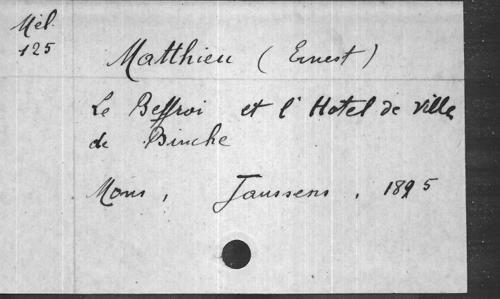 Mél.
125
Matthieu (Ernest)
Le Beffroi et l'Hotel de Ville
de Binche
Mons, Janssens, 1895